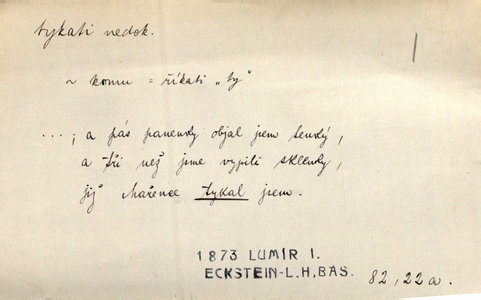 tykati nedok.
~ komu = říkati „ty“
...; a pás panenky objal jsem tenký,
a tři než jsme vypili sklenky,
již Mařence tykal jsem.
1873 LUMÍR I.
ECKSTEIN-L.H.BÁS.
82, 22a.